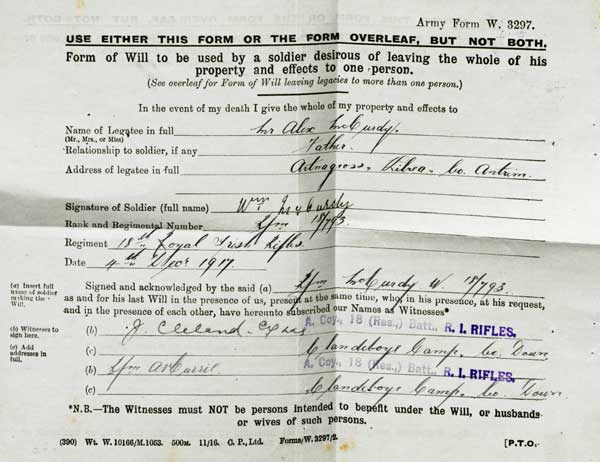 Army Form W. 3297.
USE EITHER THIS FORM OR THE FORM OVERLEAF, BUT NOT BOTH.
Form of Will to be used by a soldier desirous of leaving the whole of his
property and effects to one person.
(See overleaf for Form of Will leaving legacies to more than one person.)
In the event of my death I give the whole of my property and effects to
Name of Legatee in full Mr Alex McCurdy.
(Mr., Mrs., or Miss)
Relationship to soldier, if any Father.
Address of legatee in full Kilrea, Co. Antrim.
Signature of Soldier (full name) Wm McCurdy
Rank and Regimental Number Rfm 18/793.
Regiment 18th Royal Irish Rifles.
Date 4th Decr 1917.
(a) Insert full name of soldier making the Will.
Signed and acknowledged by the said (a) Rfm McCurdy W. 18/793
as and for his last Will in the presence of us, present at the same time, who, in his presence, at his request,
and in the presence of each other, have hereunto subscribed our Names as Witnesses*
(b) Witnesses to sign here.
(b) J. Cleland
A. Coy., 18 (Res.,) Batt., R. I. RIFLES.
(c) Add addresses in full.
(c) Clandeboye Camp, Co. Down
(b) Rfm
A. Coy., 18 (Res.,) Batt., R. I. RIFLES.
(c) Clandeboye Camp, Co. Down
*N.B.—The Witnesses must NOT be persons intended to benefit under the Will, or husbands
or wives of such persons.
(390) Wt. W. 10166/M.1053. 500M. 11/16. C. P., Ltd. Forms/W.3297/2. [P.T.O.